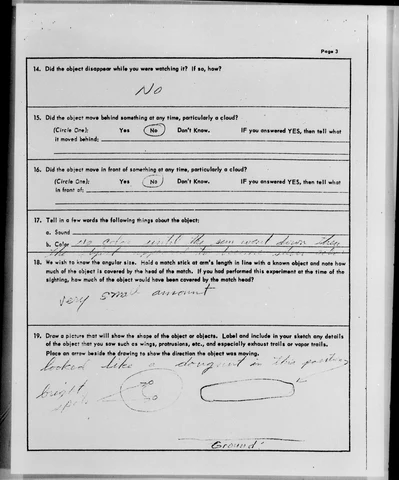 Page 3
14. Did the object disappear while you were watching it? If so, how?
No
15. Did the object move behind something at any time, particularly a cloud?
(Circle One): Yes No Don't Know. IF you answered YES, then tell what
it moved behind:
16. Did the object move in front of something at any time, particularly a cloud?
(Circle One): Yes No Don't Know. IF you answered YES, then tell what
in front of:
17. Tell in a few words the following things about the object:
a. Sound
b. Color no color until the sun went down then
the
18. We wish to know the angular size. Hold a match stick at arm's length in line with a known object and note how
much of the object is covered by the head of the match. If you had performed this experiment at the time of the
sighting, how much of the object would have been covered by the match head?
very small amount
19. Draw a picture that will show the shape of the object or objects. Label and include in your sketch any details
of the object that you saw such as wings, protrusions, etc., and especially exhaust trails or vapor trails.
Place an arrow beside the drawing to show the direction the object was moving.
looked like a doughnut in this position
bright
spots
Ground